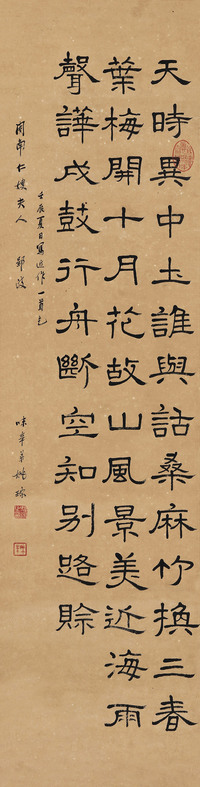 天時異中土誰與話桑麻竹換三春
葉梅開十月花故山風景美近海雨
聲譁戍鼓行舟斷空知别路賒
壬辰夏日寫近作一首乞
仁嫂夫人 郢政
味辛弟姚琮